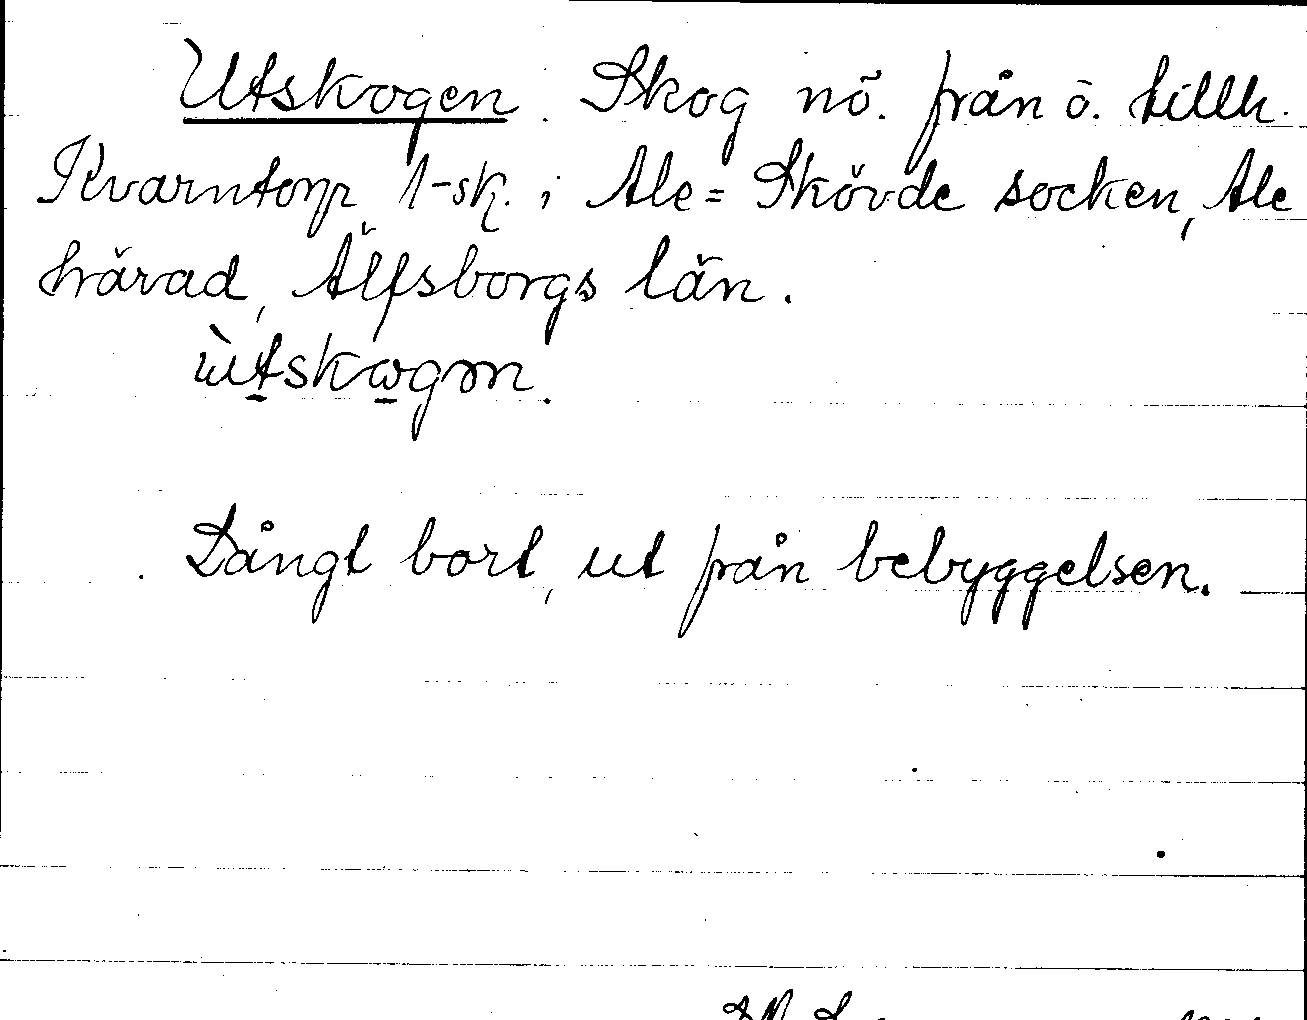 Utskogen. Skog nö. från ö. tillh.
Kvarntorp, 1-sk. i Ale=Skövde socken, Ale
härad, Älfsborgs län.
ùtskωgn.
Långt bort, ut från bebyggelsen.